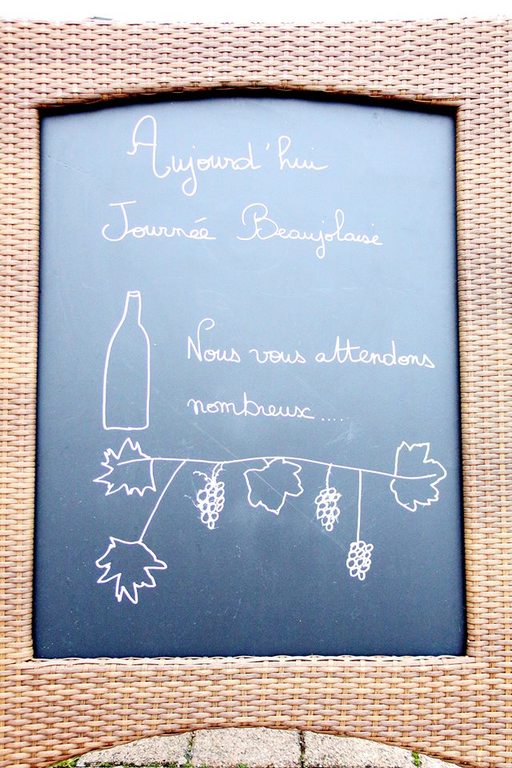 Aujourd'hui
Journée Beaujolaise
Nous vous attendons
nombreux.....